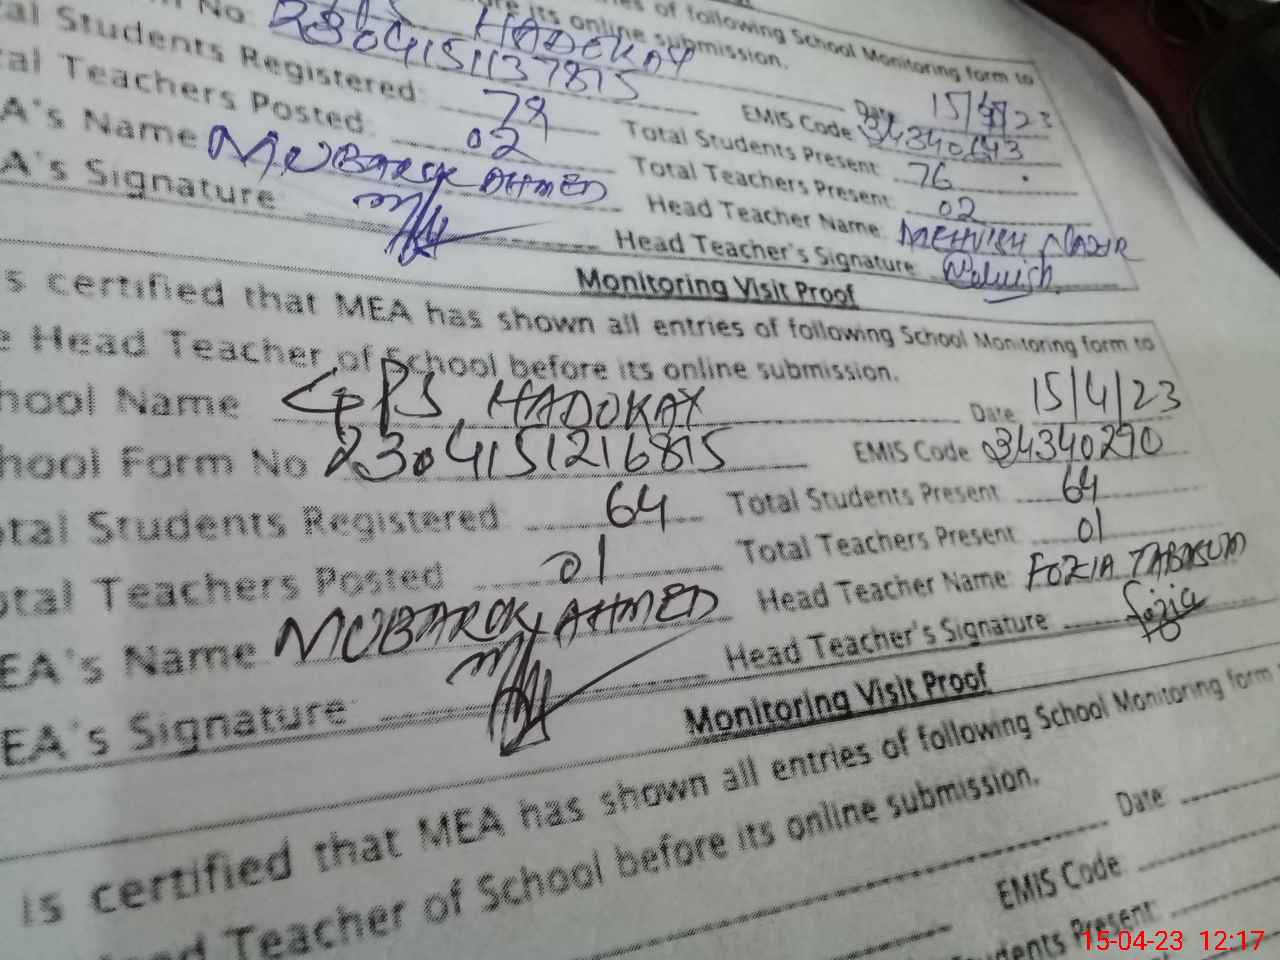 es of following School Monitoring form to
re its online submission.
HADOKAY Date 15/4/23
m No. 2304151137815 EMIS Code 34340643
al Students Registered: 79 Total Students Present: 76
tal Teachers Posted: 02 Total Teachers Present: 02
A's Name MUBARAK AHMED Head Teacher Name: MEHVISH NAZIR
A's Signature Head Teacher's Signature: Mehvish
Monitoring Visit Proof
s certified that MEA has shown all entries of following School Monitoring form to
e Head Teacher of School before its online submission.
hool Name GPS HADOKAY Date 15/4/23
hool Form No 2304151216815 EMIS Code 34340290
otal Students Registered 64 Total Students Present 64
otal Teachers Posted 01 Total Teachers Present 01
EA's Name MUBARAK AHMED Head Teacher Name: FOZIA TABASUM
EA's Signature Head Teacher's Signature: fozia
Monitoring Visit Proof
is certified that MEA has shown all entries of following School Monitoring form
ead Teacher of School before its online submission.
Date:
EMIS Code:
udents Present:
15-04-23 12:17